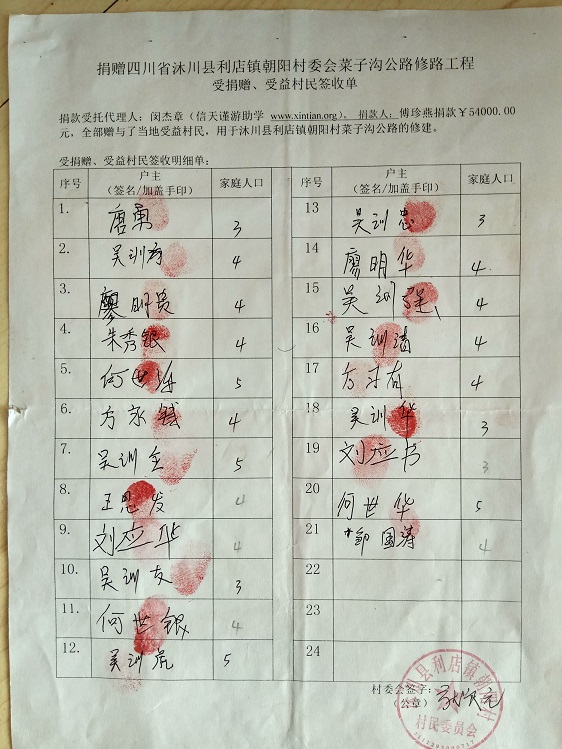 捐赠四川省沐川县利店镇朝阳村委会菜子沟公路修路工程
受捐赠、受益村民签收单
捐款受托代理人:闵杰章(信天谨游助学 www.xintian.org)。捐款人:傅珍燕捐款￥54000.00
元,全部赠与了当地受益村民,用于沐川县利店镇朝阳村菜子沟公路的修建。
受捐赠、受益村民签收明细单:
序号 户主(签名/加盖手印) 家庭人口
1. 唐勇 3
2. 吴训 4
3. 廖明贵 4
4. 朱秀银 4
5. 何世 5
6. 方永钱 4
7. 吴训全 5
8. 王思发 4
9. 刘应华 4
10. 吴训友 3
11. 何世银 4
12. 吴训虎 5
序号 户主(签名/加盖手印) 家庭人口
13 吴训忠 3
14 廖明华 4
15 吴训强 4
16 吴训清 4
17 方才有 4
18 吴训华 3
19 刘应书 3
20 何世华 5
21 邹国涛 4
22
23
24
村委会签字:
(公章)
县利店镇朝阳村
村民委员会